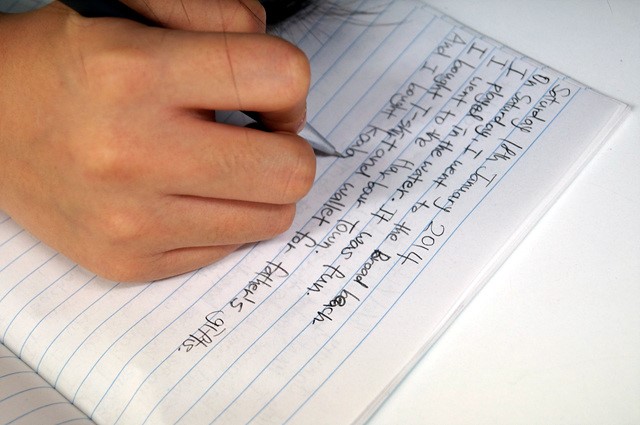 Saturday 18th January 2014
On Saturday, I went to the Broad beach
I played in the water. It was fun.
I went to the Harbour Town.
I bought T-shirt and wallet for father's gifts.
And I bought